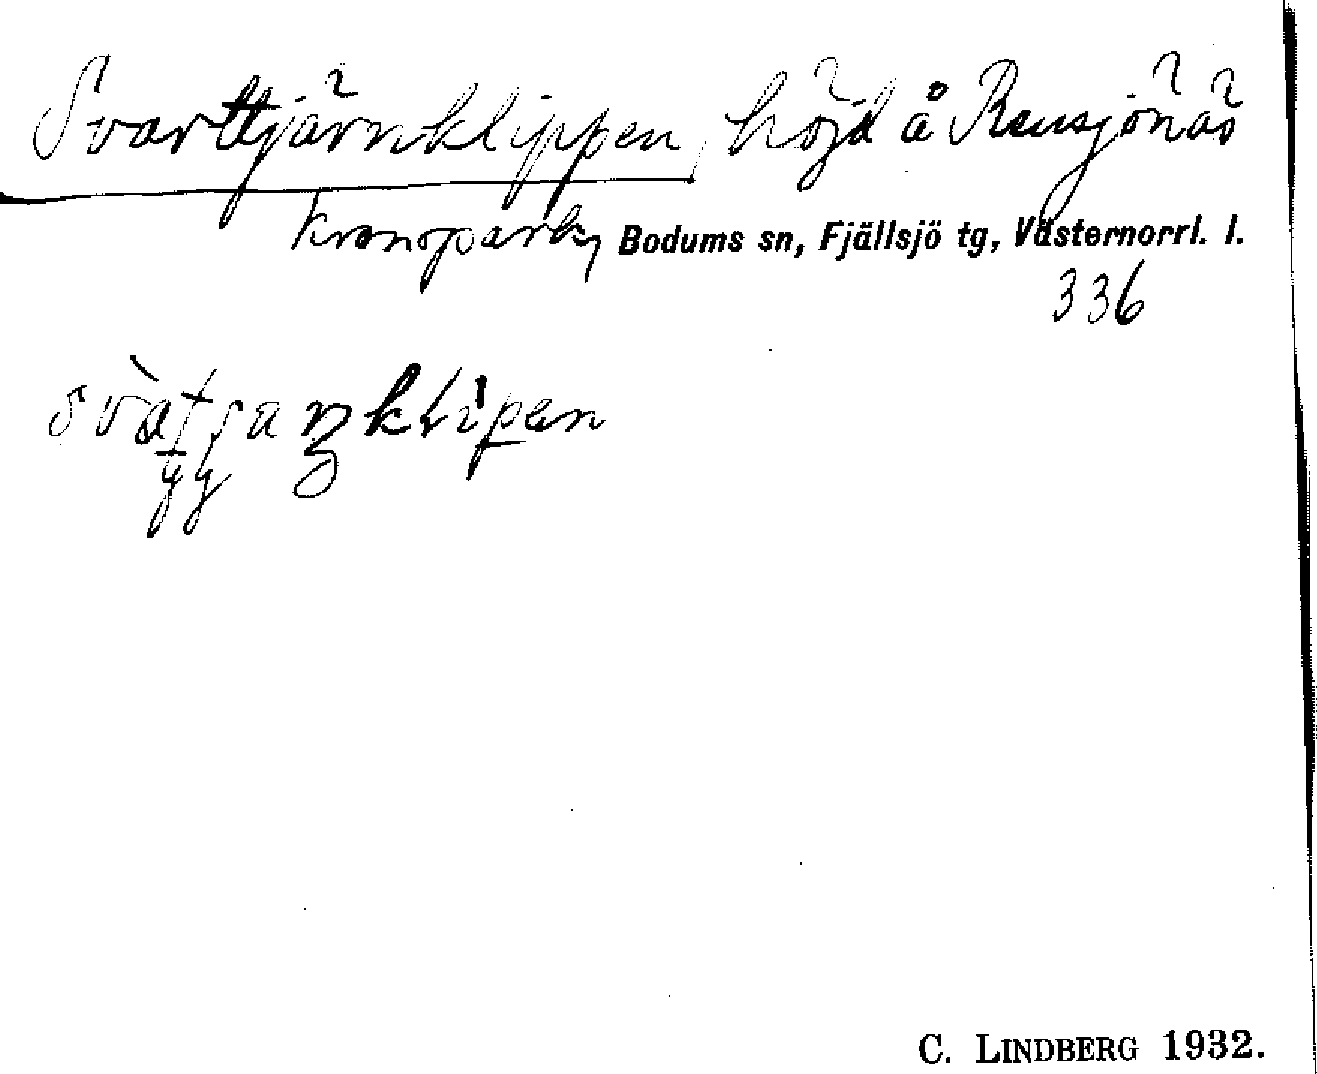 Svarttjärnklippen, höjd å Rensjönäs
kronopark, Bodums sn, Fjällsjö tg, Västernorrl. l.
336
C. LINDBERG 1932.